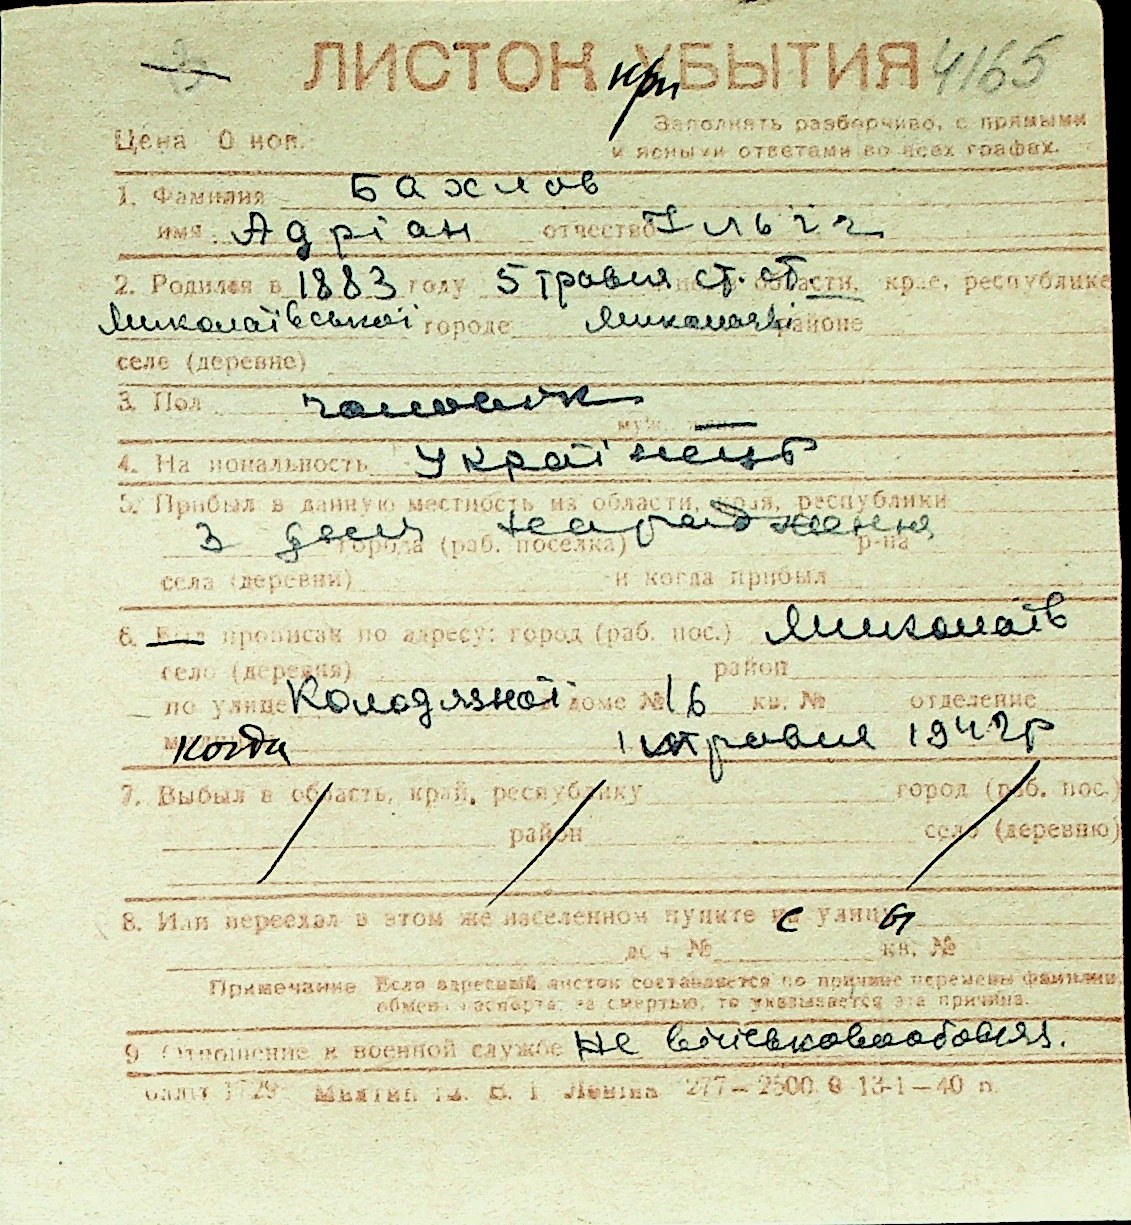 ЛИСТОК при УБЫТИЯ 4165
Цена 0 коп.
Заполнять разборчиво, с прямыми
и ясными ответами во всех графах.
1. Фамилия Бахлов
имя Адріан отчество Ількч
2. Родился в 1883 году 5 травня ст. ст. области, крае, республике
Миколаївської городе Миколаїві районе
селе (деревне)
3. Пол чоловік
муж. жен.
4. Национальность Українець
5. Прибыл в данную местность из области, края, республики
З дня народження
города (раб. поселка) р-на
села (деревни) и когда прибыл
6. Был прописан по адресу: город (раб. пос.) Миколаїв
село (деревня) район
по улице Колодязной доме № 16 кв. № отделение
когда 1 травня 1942 р
7. Выбыл в область, край, республику город (раб. пос.)
район село (деревню)
8. Или переехал в этом же населенном пункте на с улицы
дом № кв. №
Примечание Если адресный листок составляется по причине перемены фамилии,
обмена паспорта, за смертью, то указывается эта причина.
9 Отношение к военной службе Не військовообовяз.
277—2500 13-1—40 п.